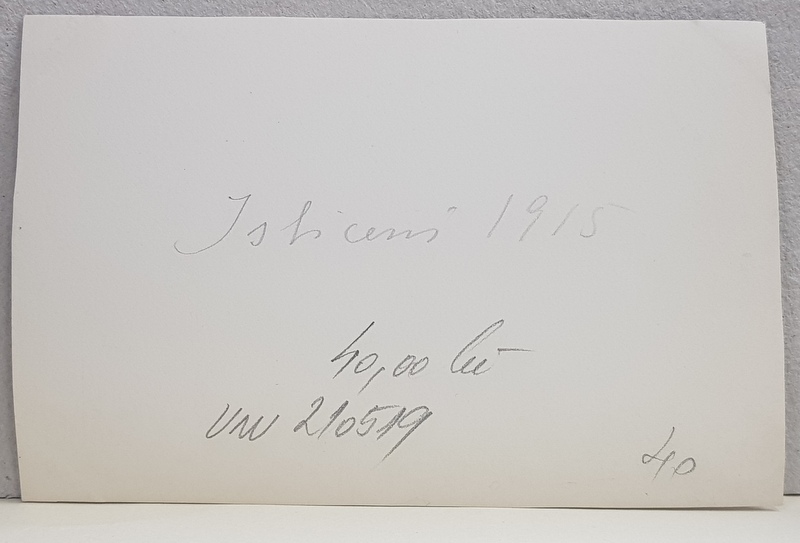 Isticeni 1915
40,00 lei
VNV 210519
40